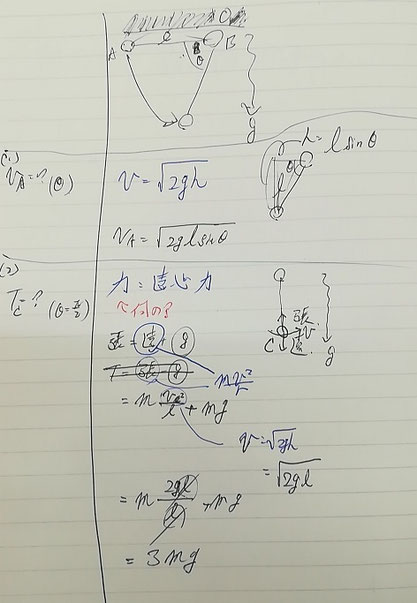 l O
A B
θ
g
(1)
v_A=? (θ)
v = √2gh
h = l sinθ
l θ
v_A = √2gl sinθ
(2)
T_C=? (θ=π/2)
力 = 遠心力
↑何の?
張 = 遠 + g
T = 張 - g
m v²/r
張
C v
遠
g
= m v_c²/l + mg
v = √2gh
= √2gl
= m 2gl/l + mg
= 3mg